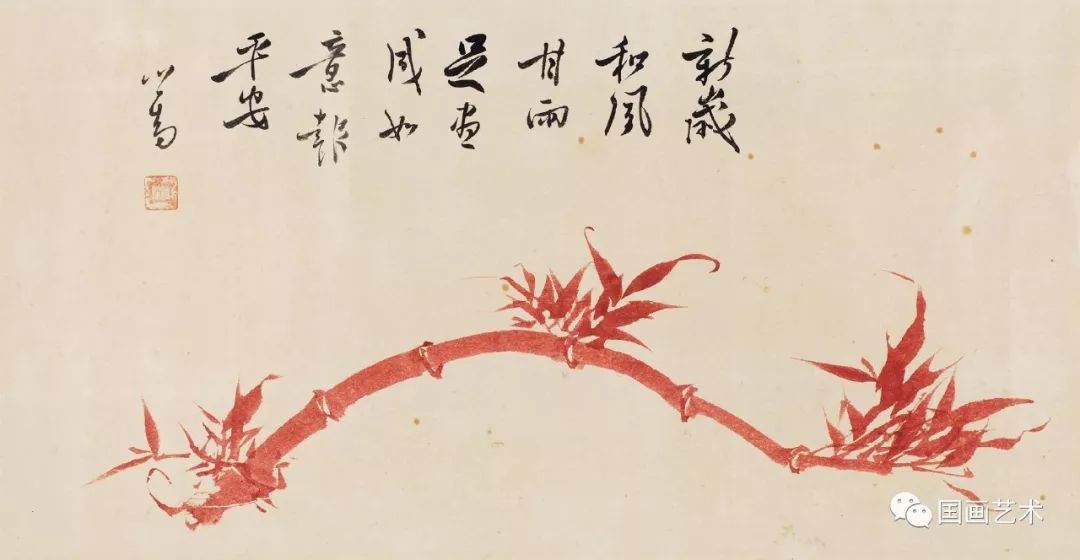 新歲
和風
甘雨
足畫
成如
意報
平安
心畬
国画艺术